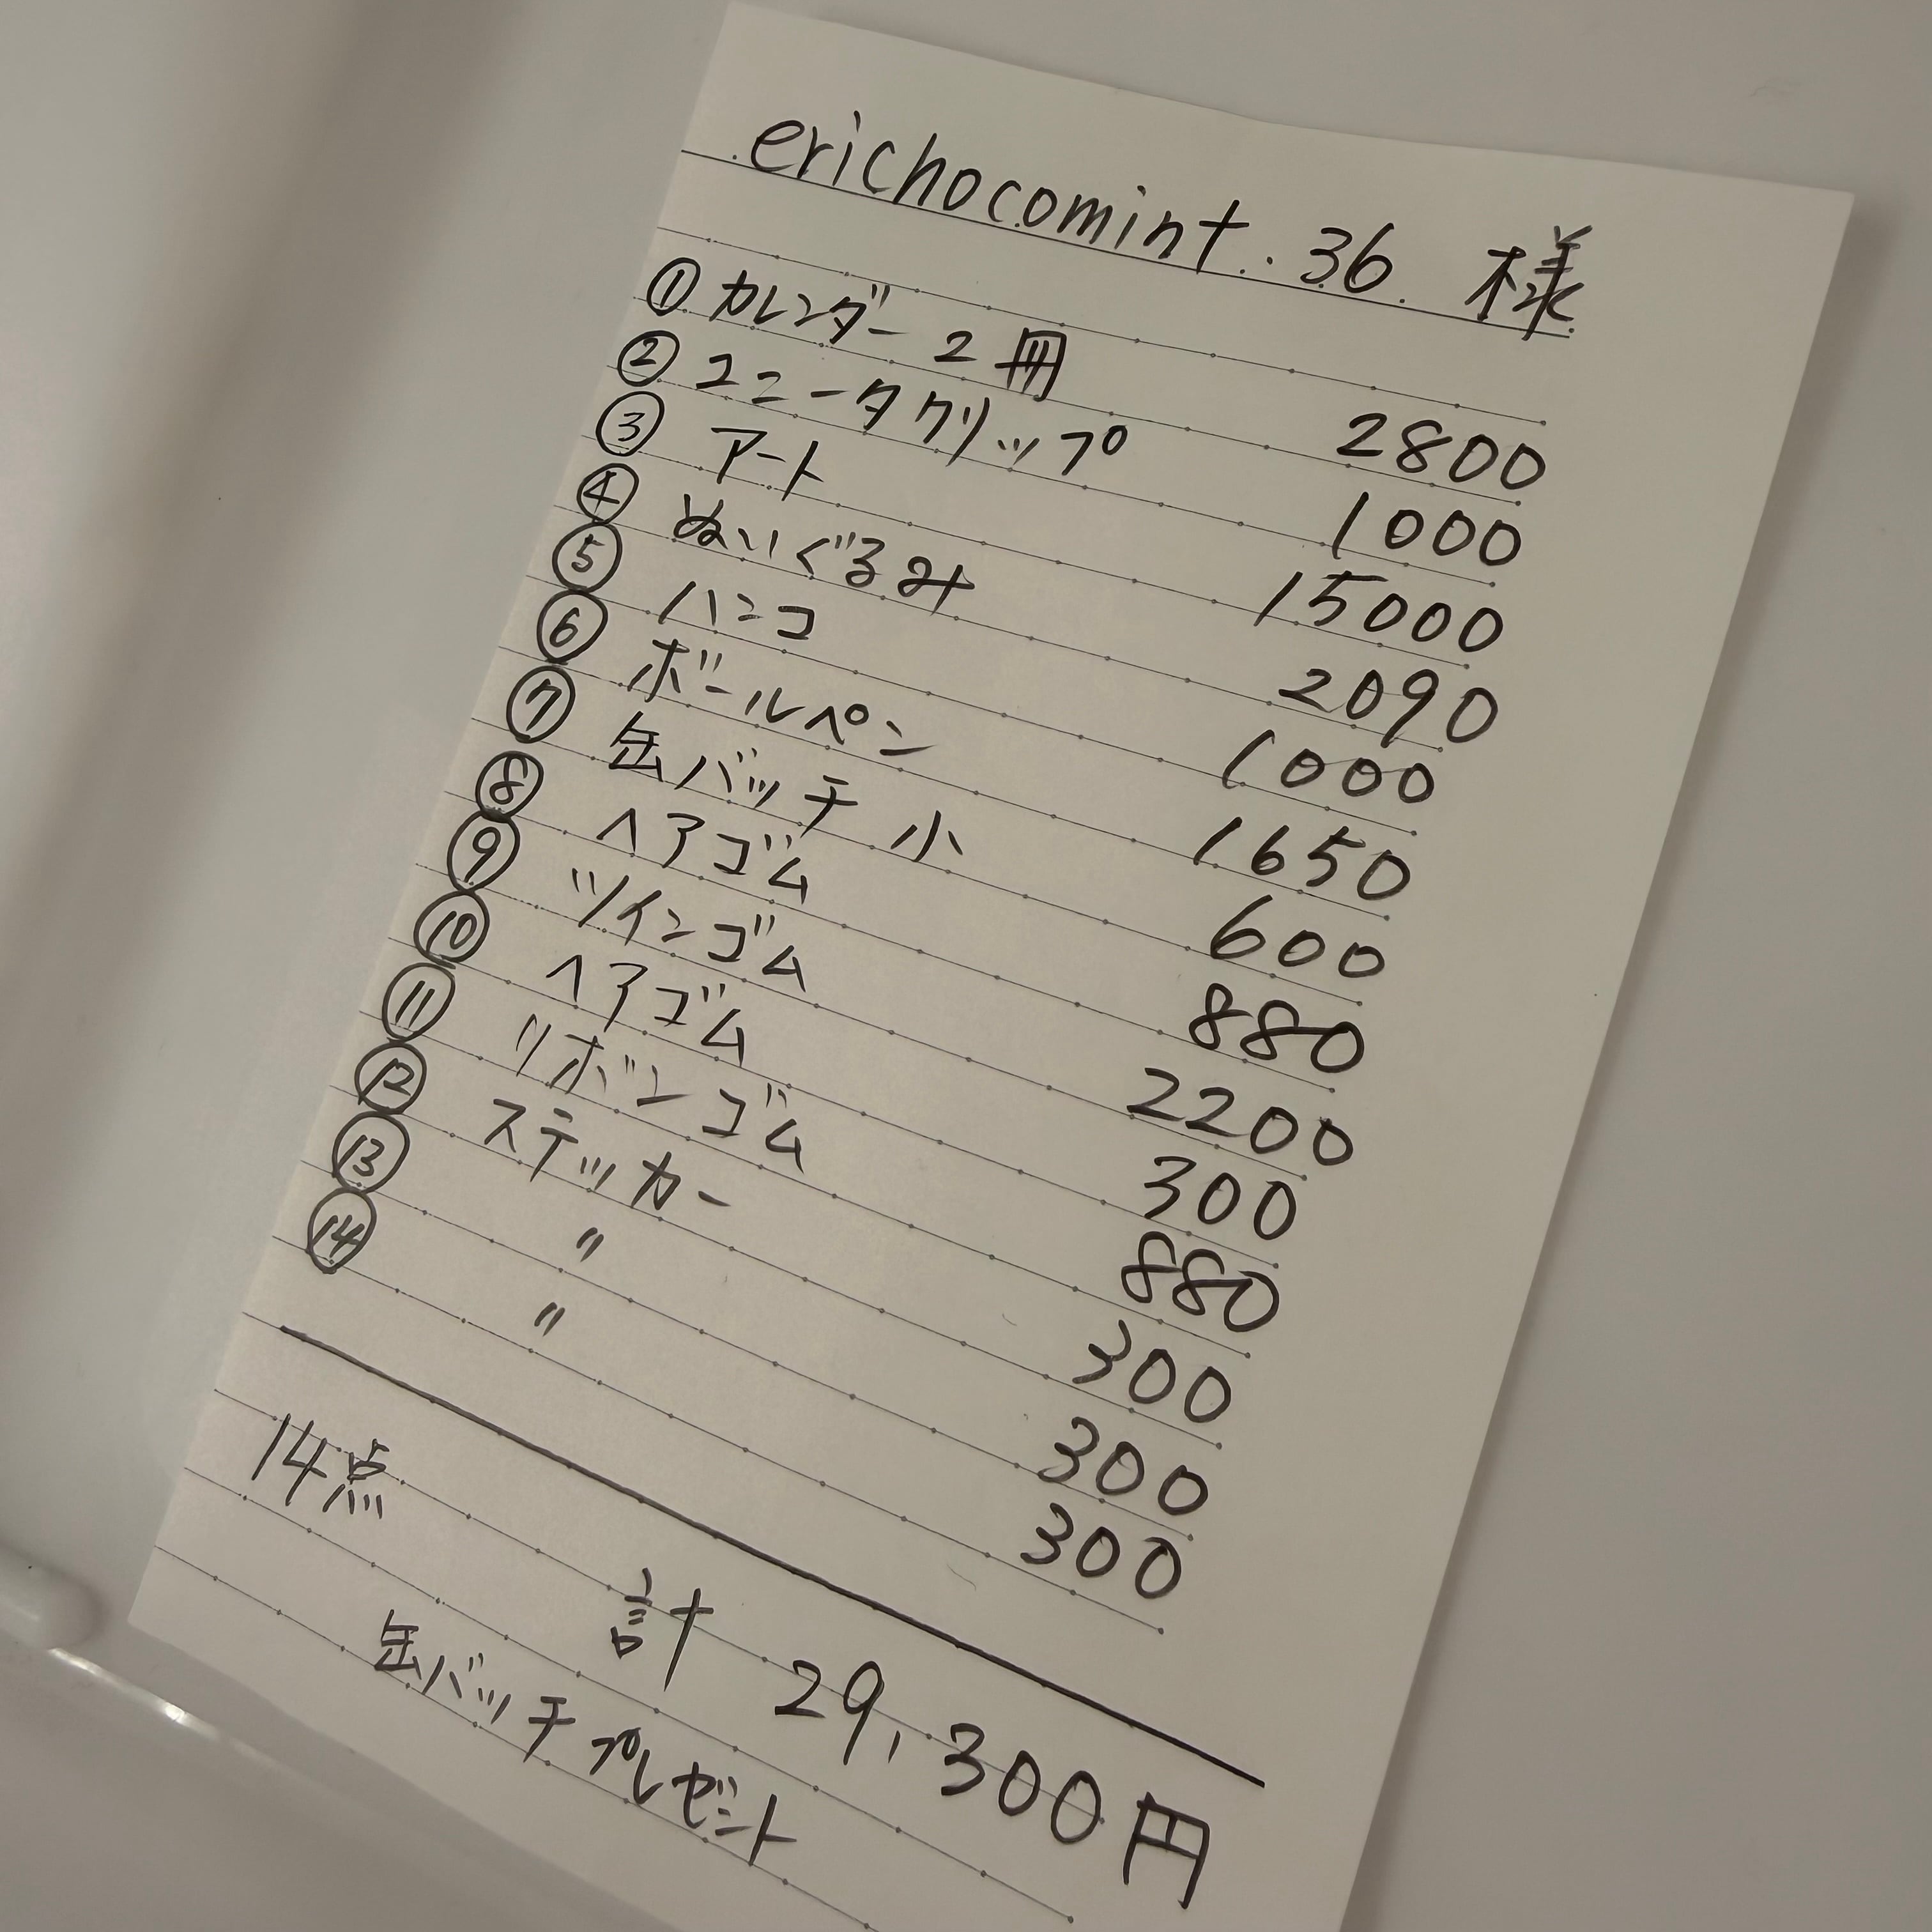 erichocomint..36. 様
① カレンダー 2冊 2800
② ユニータクリップ 1000
③ アート 15000
④ ぬいぐるみ 2090
⑤ ハンコ 1000
⑥ ボールペン 1650
⑦ 缶バッチ 小 600
⑧ ヘアゴム 880
⑨ ツインゴム 2200
⑩ ヘアゴム 300
⑪ リボンゴム 880
⑫ ステッカー 300
⑬ 〃 300
⑭ 〃 300
14点
計 29,300円
缶バッチプレゼント